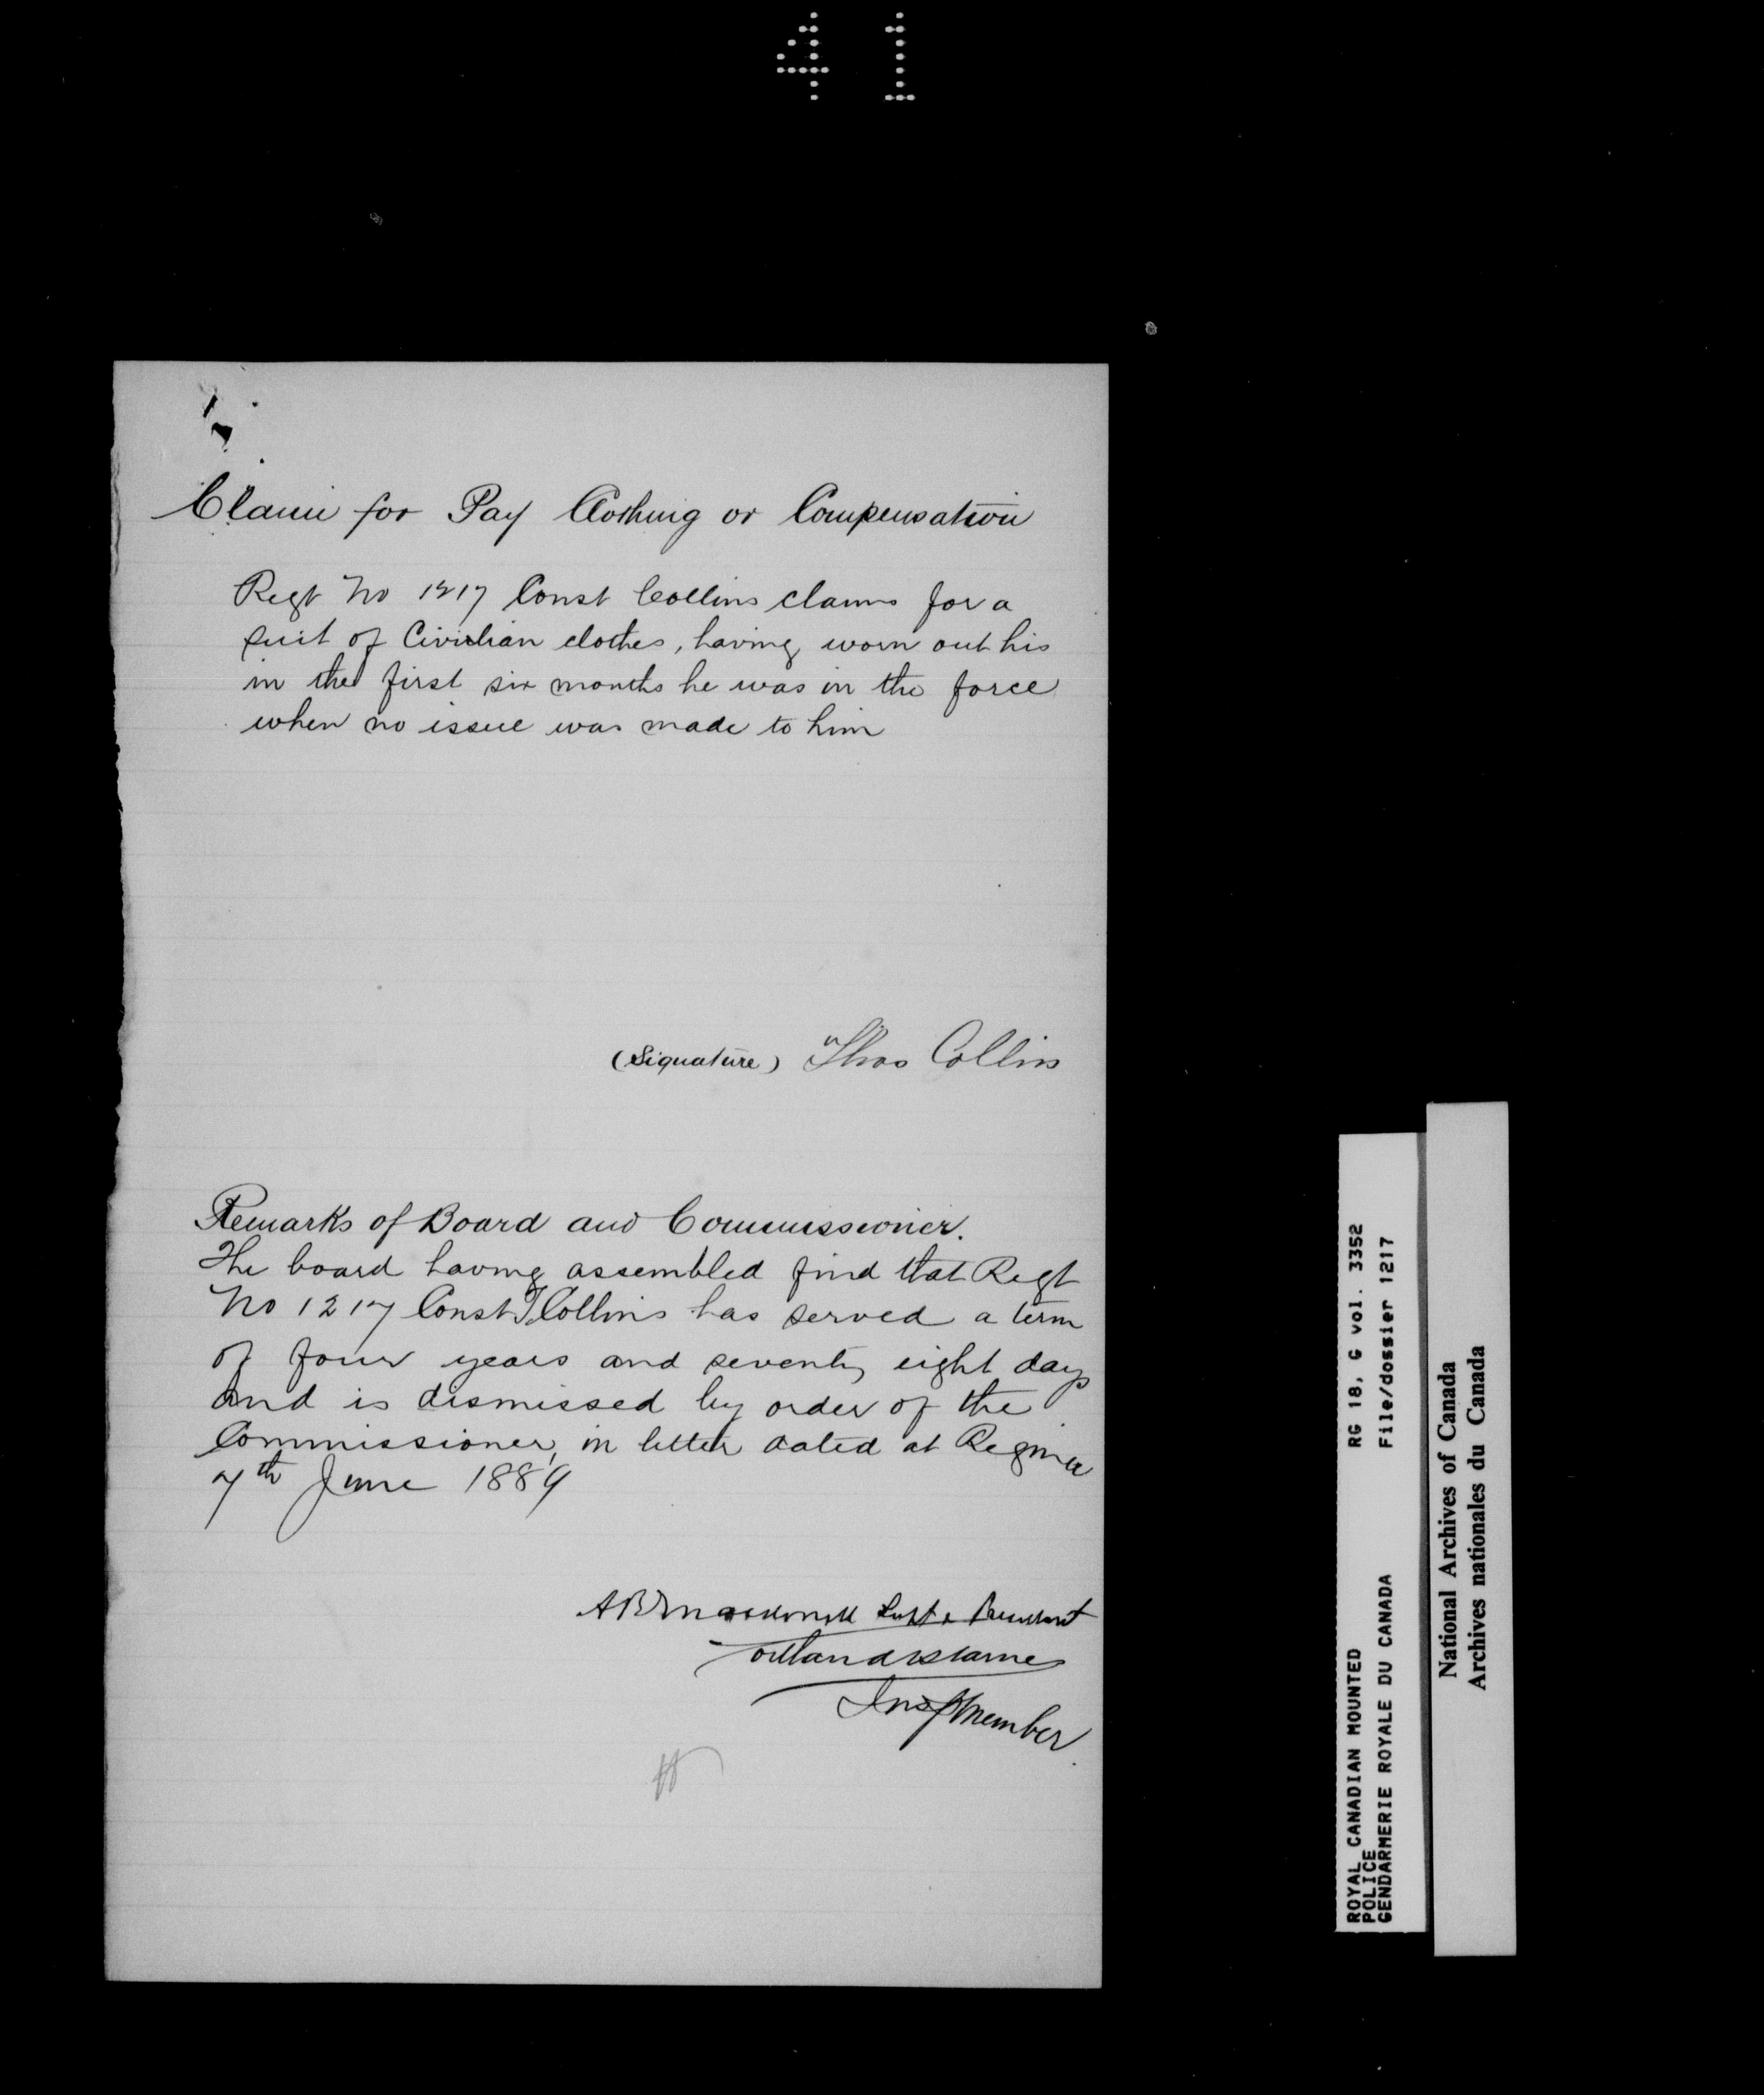 4 1
Claim for Pay Clothing or Compensation
Regt No 1217 Const Collins claims for a
suit of Civilian clothes, having worn out his
in the first six months he was in the force
when no issue was made to him
(Signature) Thos Collins
Remarks of Board and Commissioner.
The board having assembled find that Regt
No 1217 Const T Collins has served a term
of four years and seventy eight days
and is dismissed by order of the
Commissioner, in letter dated at Regina
7th June 1889
Supt & President
Insp Member
ROYAL CANADIAN MOUNTED
POLICE
GENDARMERIE ROYALE DU CANADA
RG 18, G vol. 3352
File/dossier 1217
National Archives of Canada
Archives nationales du Canada